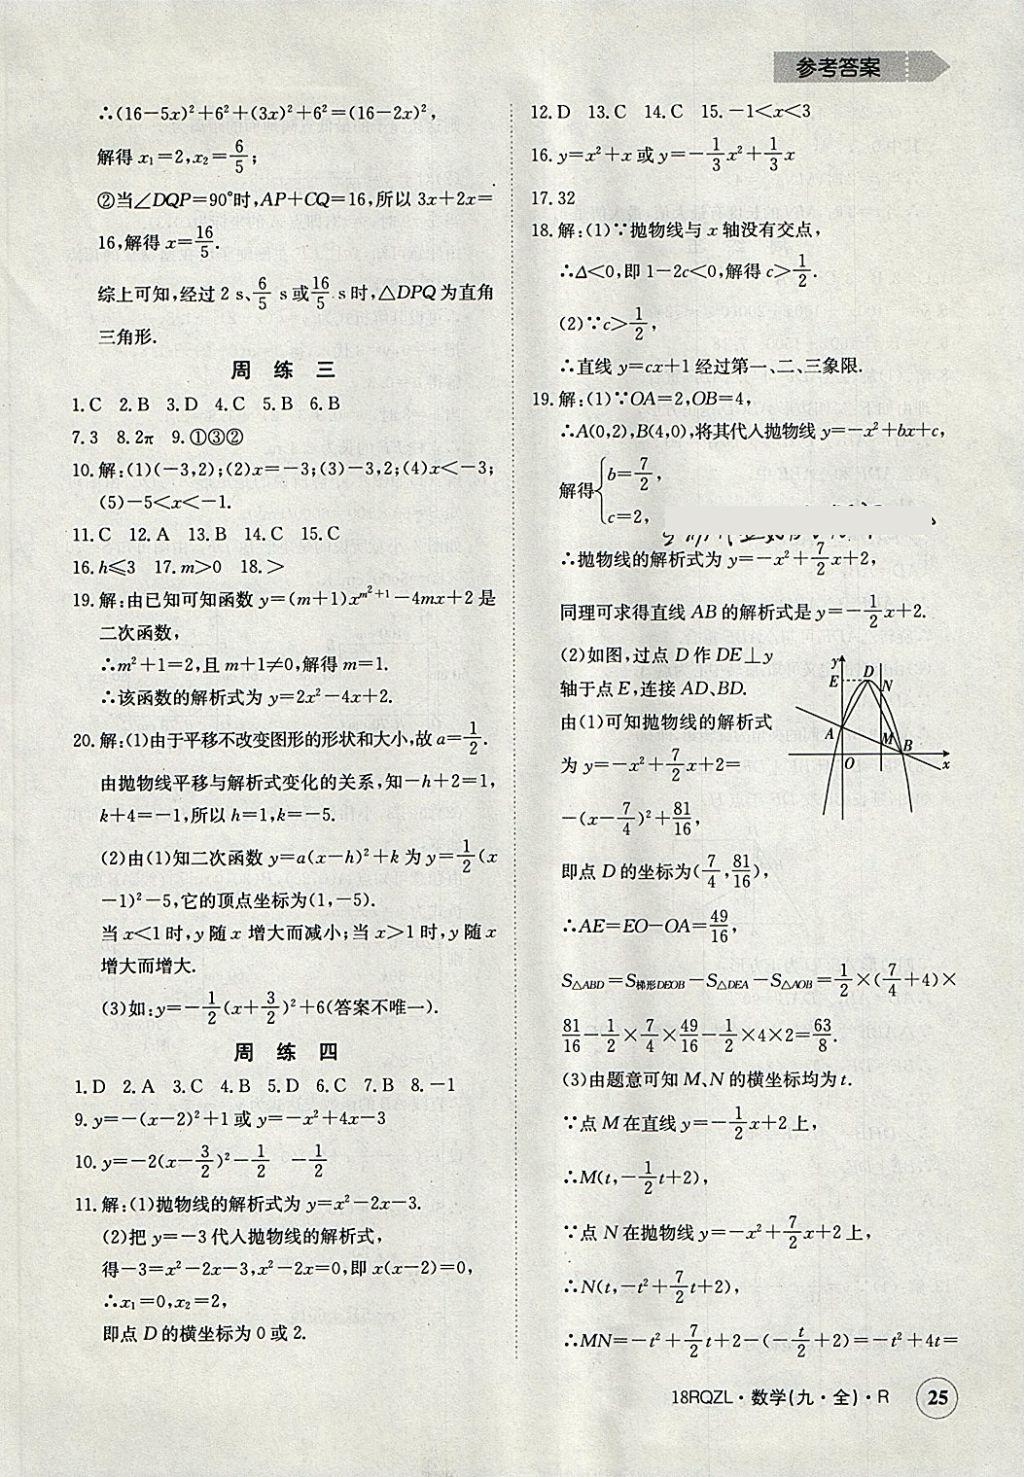 参考答案
∴(16-5x)²+6²+(3x)²+6²=(16-2x)²,
解得 x₁=2,x₂=6/5;
②当∠DQP=90°时,AP+CQ=16,所以 3x+2x=
16,解得 x=16/5.
综上可知,经过 2 s、6/5 s或16/5 s时,△DPQ为直角
三角形.
周 练 三
1.C 2.B 3.D 4.C 5.B 6.B
7.3 8.2π 9.①③②
10.解:(1)(-3,2);(2)x=-3;(3)-3,2;(4)x<-3;
(5)-5<x<-1.
11.C 12.A 13.B 14.C 15.C
16.h≤3 17.m>0 18.>
19.解:由已知可知函数 y=(m+1)x^{m²+1}-4mx+2 是
二次函数,
∴m²+1=2,且 m+1≠0,解得 m=1.
∴该函数的解析式为 y=2x²-4x+2.
20.解:(1)由于平移不改变图形的形状和大小,故 a=1/2.
由抛物线平移与解析式变化的关系,知-h+2=1,
k+4=-1,所以 h=1,k=-5.
(2)由(1)知二次函数 y=a(x-h)²+k 为 y=1/2(x
-1)²-5,它的顶点坐标为(1,-5).
当 x<1 时,y 随 x 增大而减小;当 x>1 时,y 随 x
增大而增大.
(3)如:y=-1/2(x+3/2)²+6(答案不唯一).
周 练 四
1.D 2.A 3.C 4.B 5.D 6.C 7.B 8.-1
9.y=-(x-2)²+1 或 y=-x²+4x-3
10.y=-2(x-3/2)²-1/2 -1/2
11.解:(1)抛物线的解析式为 y=x²-2x-3.
(2)把 y=-3代入抛物线的解析式,
得-3=x²-2x-3,x²-2x=0,即 x(x-2)=0,
∴x₁=0,x₂=2,
即点 D 的横坐标为 0 或 2.
12.D 13.C 14.C 15.-1<x<3
16.y=x²+x 或 y=-1/3x²+1/3x
17.32
18.解:(1)∵抛物线与 x 轴没有交点,
∴Δ<0,即 1-2c<0,解得 c>1/2.
(2)∵c>1/2,
∴直线 y=cx+1 经过第一、二、三象限.
19.解:(1)∵OA=2,OB=4,
∴A(0,2),B(4,0),将其代入抛物线 y=-x²+bx+c,
解得{b=7/2,
c=2,
∴抛物线的解析式为 y=-x²+7/2x+2,
同理可求得直线 AB 的解析式是 y=-1/2x+2.
(2)如图,过点 D 作 DE⊥y
轴于点 E,连接 AD、BD.
由(1)可知抛物线的解析式
为 y=-x²+7/2x+2=
-(x-7/4)²+81/16,
y E D N A M B O x
即点 D 的坐标为(7/4,81/16),
∴AE=EO-OA=49/16,
S△ABD=S梯形DEOB-S△DEA-S△AOB=1/2×(7/4+4)×
81/16-1/2×7/4×49/16-1/2×4×2=63/8.
(3)由题意可知 M、N 的横坐标均为 t.
∵点 M 在直线 y=-1/2x+2 上,
∴M(t,-1/2t+2),
∵点 N 在抛物线 y=-x²+7/2x+2 上,
∴N(t,-t²+7/2t+2),
∴MN=-t²+7/2t+2-(-t/2+2)=-t²+4t=
18RQZL·数学(九·全)·R 25